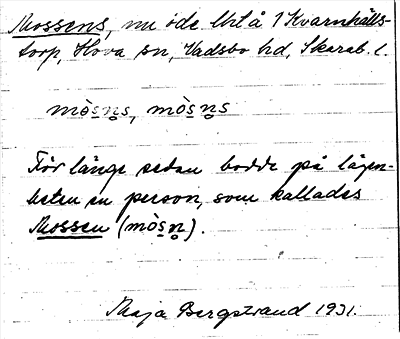 Mossens, nu öde lht å 1 Kvarnhälls-
torp, Hova sn, Vadsbo hd, Skarab. l.
mòs̠n̥s, mòs̠n̥s
För länge sedan bodde på lägen-
heten en person, som kallades
Mossen (mòs̠n̥).
Maja Bergstrand 1931.